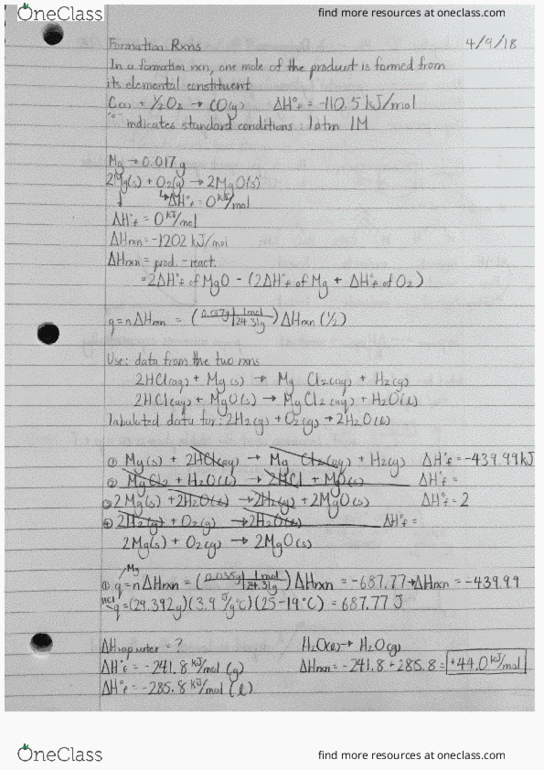 OneClass
find more resources at oneclass.com
Formation Rxns
4/9/18
In a formation rxn, one mole of the product is formed from
its elemental constituent
C(s) + ½O₂ → CO(g) ΔH°f = -110.5 kJ/mol
"°" indicates standard conditions: 1atm 1M
Mg → 0.017g
2Mg(s) + O₂(g) → 2MgO(s)
↳ΔH°f = 0 kJ/mol
ΔH°f = 0 kJ/mol
ΔHrxn = -1202 kJ/mol
ΔHrxn = prod. - react.
= 2ΔH°f of MgO - (2ΔH°f of Mg + ΔH°f of O₂)
q = nΔHrxn = (0.017g | 1mol / 24.31g) ΔHrxn (½)
Use: data from the two rxns
2HCl(aq) + Mg(s) → MgCl₂(aq) + H₂(g)
2HCl(aq) + MgO(s) → MgCl₂(aq) + H₂O(l)
Tabulated data for: 2H₂(g) + O₂(g) → 2H₂O(l)
① Mg(s) + 2HCl(aq) → MgCl₂(aq) + H₂(g) ΔH°f = -439.99 kJ
② MgCl₂ + H₂O(l) → 2HCl + MgO(s) ΔH°f =
③ 2Mg(s) + 2H₂O(l) → 2H₂(g) + 2MgO(s) ΔH°f = 2
④ 2H₂(g) + O₂(g) → 2H₂O(l) ΔH°f =
2Mg(s) + O₂(g) → 2MgO(s)
Mg
① q = nΔHrxn = (0.038g | 1mol / 24.31g) ΔHrxn = -687.77 → ΔHrxn = -439.99
HCl q = (29.392g)(3.9 J/g°C)(25-19°C) = 687.77 J
ΔHvap water = ? H₂O(l) → H₂O(g)
ΔH°f = -241.8 kJ/mol (g) ΔHrxn = -241.8 + 285.8 = +44.0 kJ/mol
ΔH°f = -285.8 kJ/mol (l)
OneClass
find more resources at oneclass.com